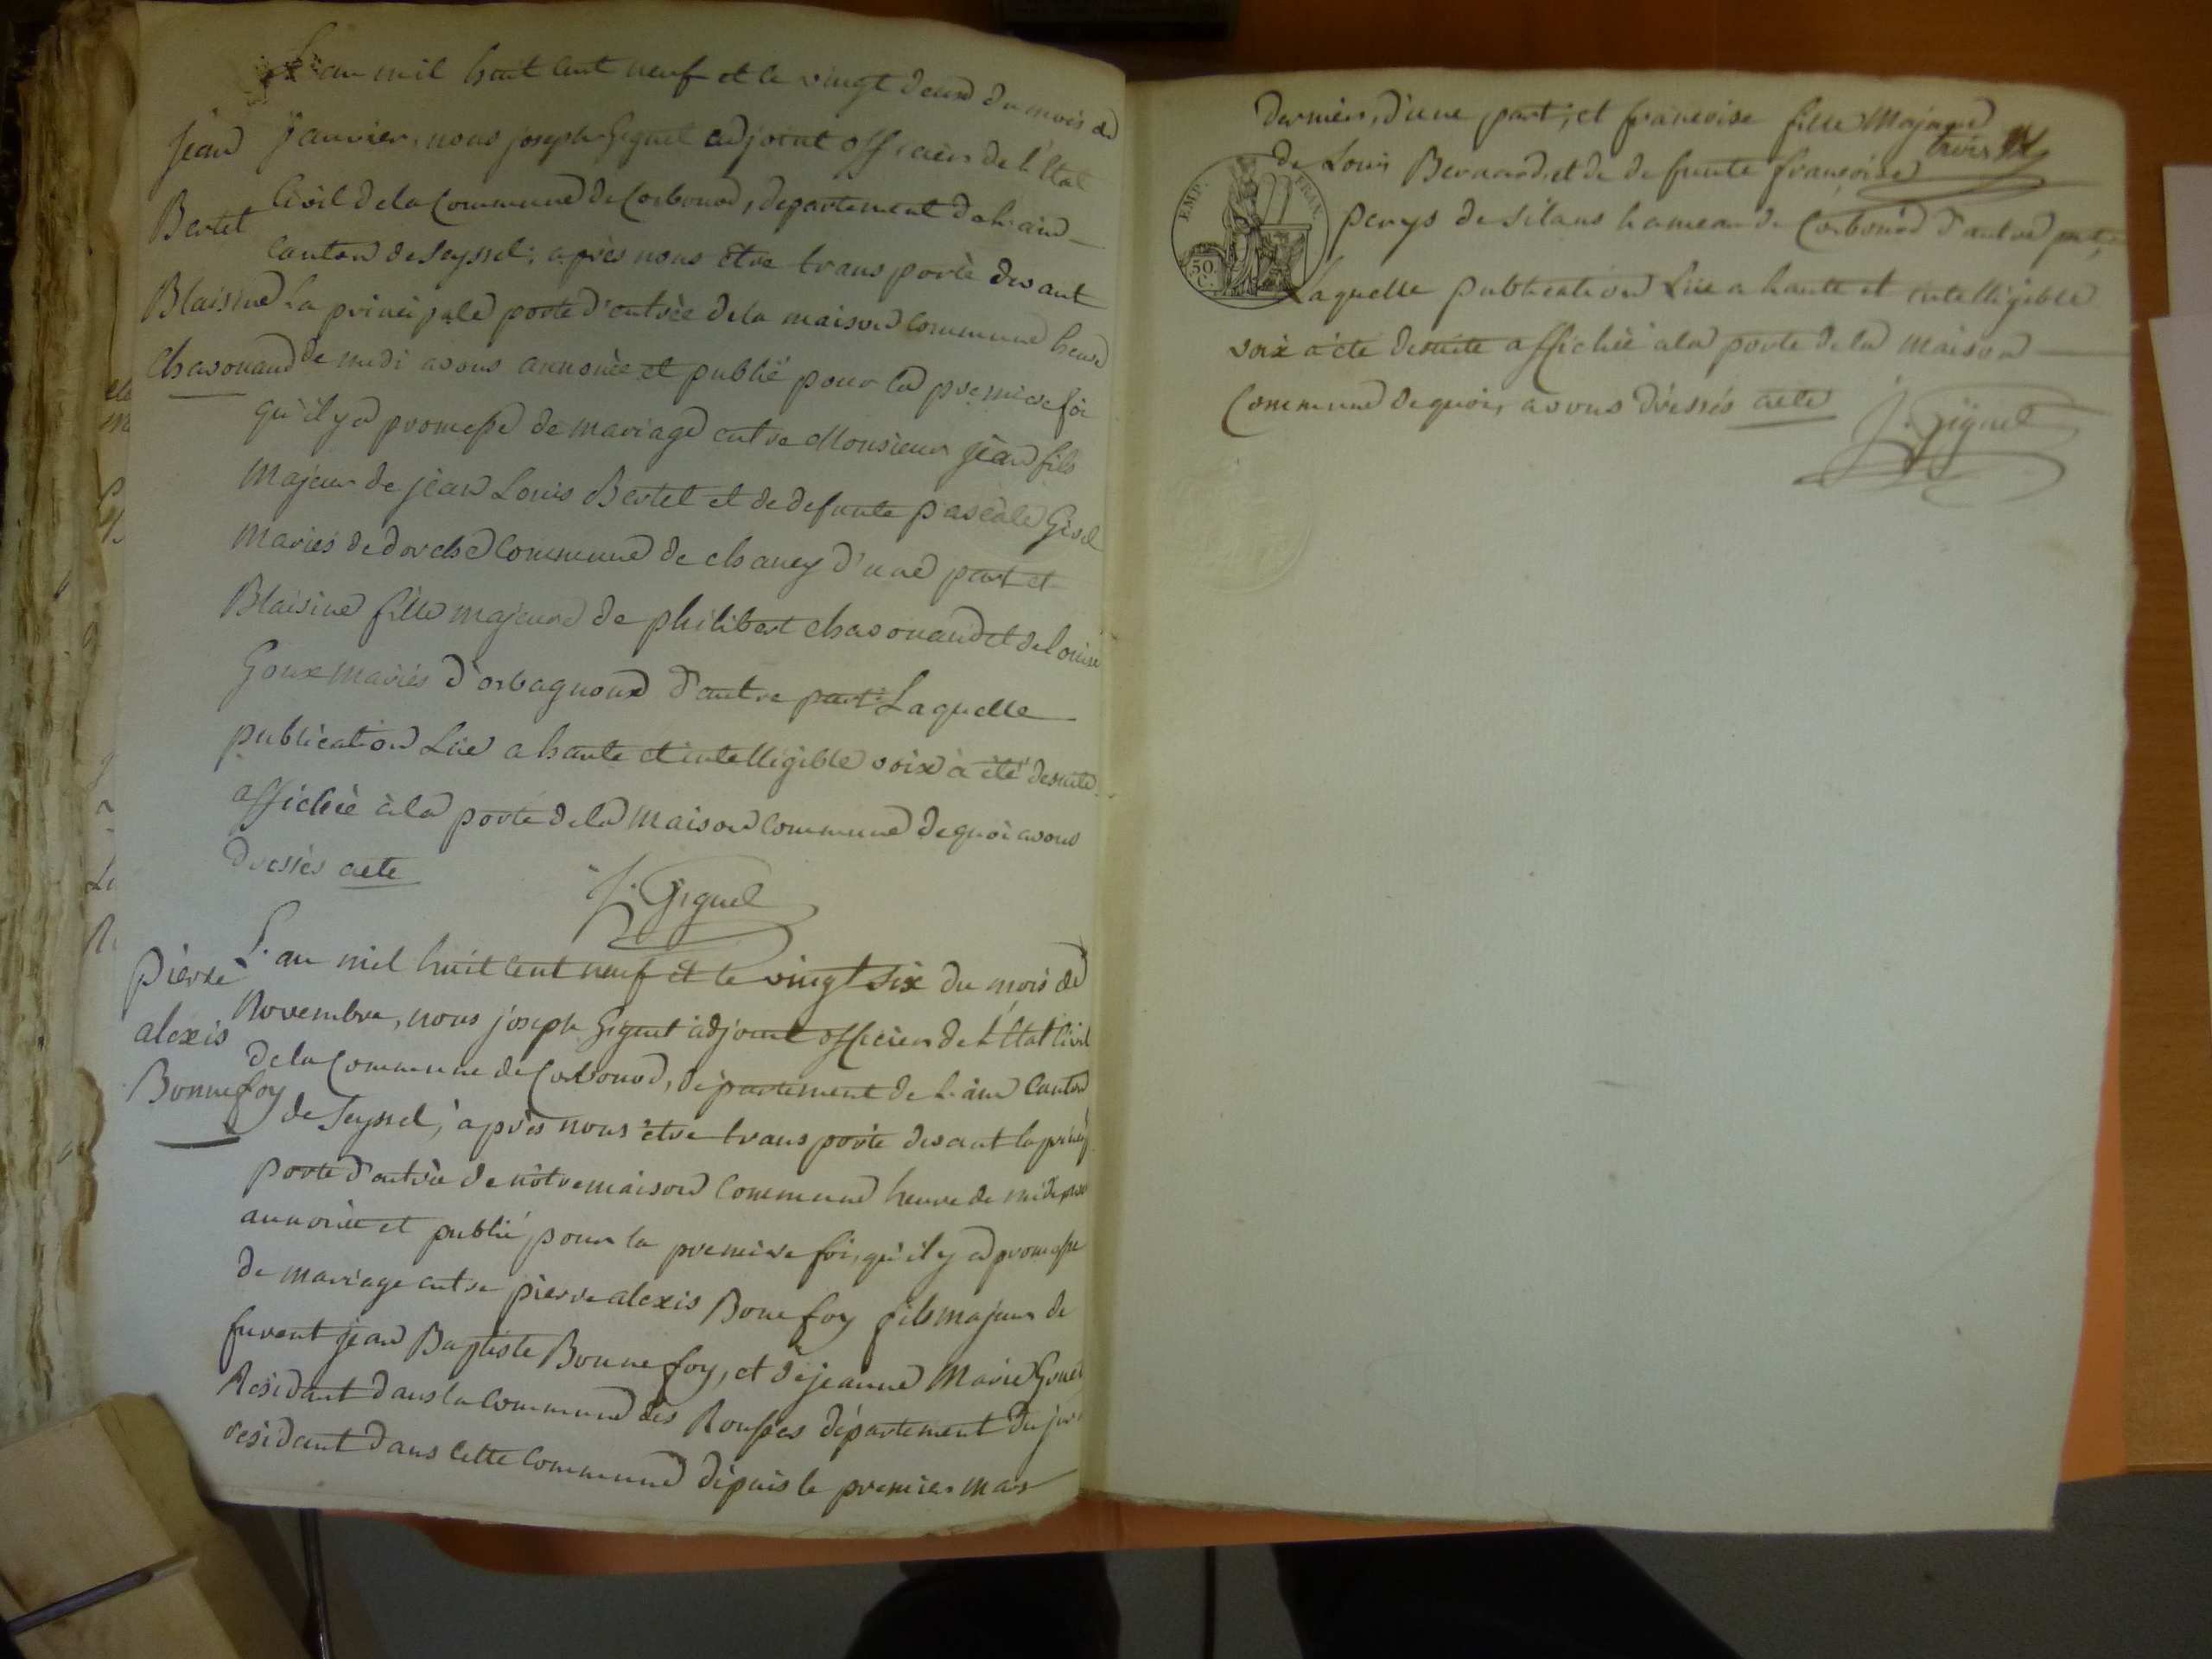 L'an mil huit cent neuf et le vingt deux du mois de
Janvier, nous joseph Giguel adjoint officier de l'Etat
Civil de la Commune de Corbonod, departement de l'ain
Canton de Seyssel; après nous être transporté devant
la principale porte d'entrée de la maison Commune heure
de midi avons annoncée et publié pour la premiere foi
qu'il y a promesse de mariage entre Monsieur jean fils
Majeur de jean Louis Bertet et de defunte pascale Girel
mariés de dorche Commune de chaney d'une part et
Blaisine fille majeure de philibert chavonand et de Louise
Goux mariés d'orbagnoux d'autre part Laquelle
publication Lüe a haute et intelligible voix à été desuite
affichée à la porte de la maison Commune de quoi avons
dressés acte
J. Giguel
Jean
Bertet
Blaisine
chavonand
L'an mil huit cent neuf et le vingt six du mois de
Novembre, nous joseph Giguel adjoint officier de L'Etat Civil
de la Commune de Corbonod, departement de L'ain Canton
de Seyssel, après nous être transporté devant la princip.
porte d'entrée de nôtre maison Commune heure de midi
annoncée et publié, pour la premiere foi, qu'il y a promesse
de mariage entre pierre alexis Bonefoy fils majeur de
furent jean Baptiste Bonnefoy, et de jeanne Marie
Residant dans la Commune des Rousses département du jura
residant dans cette Commune dépuis le premier mars
pierre
alexis
Bonnefoy
dernier, d'une part, et francoise fille Majeure
de Louis Bernard et de defunte françoise
perys de silans hameau de Corbonod d'autre part,
Laquelle publication Lüe a haute et intelligible
voix à été desuite affichée a la porte de la maison
Commune de quoi, avons dressés acte
J. Giguel
trois
EMP. FRAN.
50.
C.